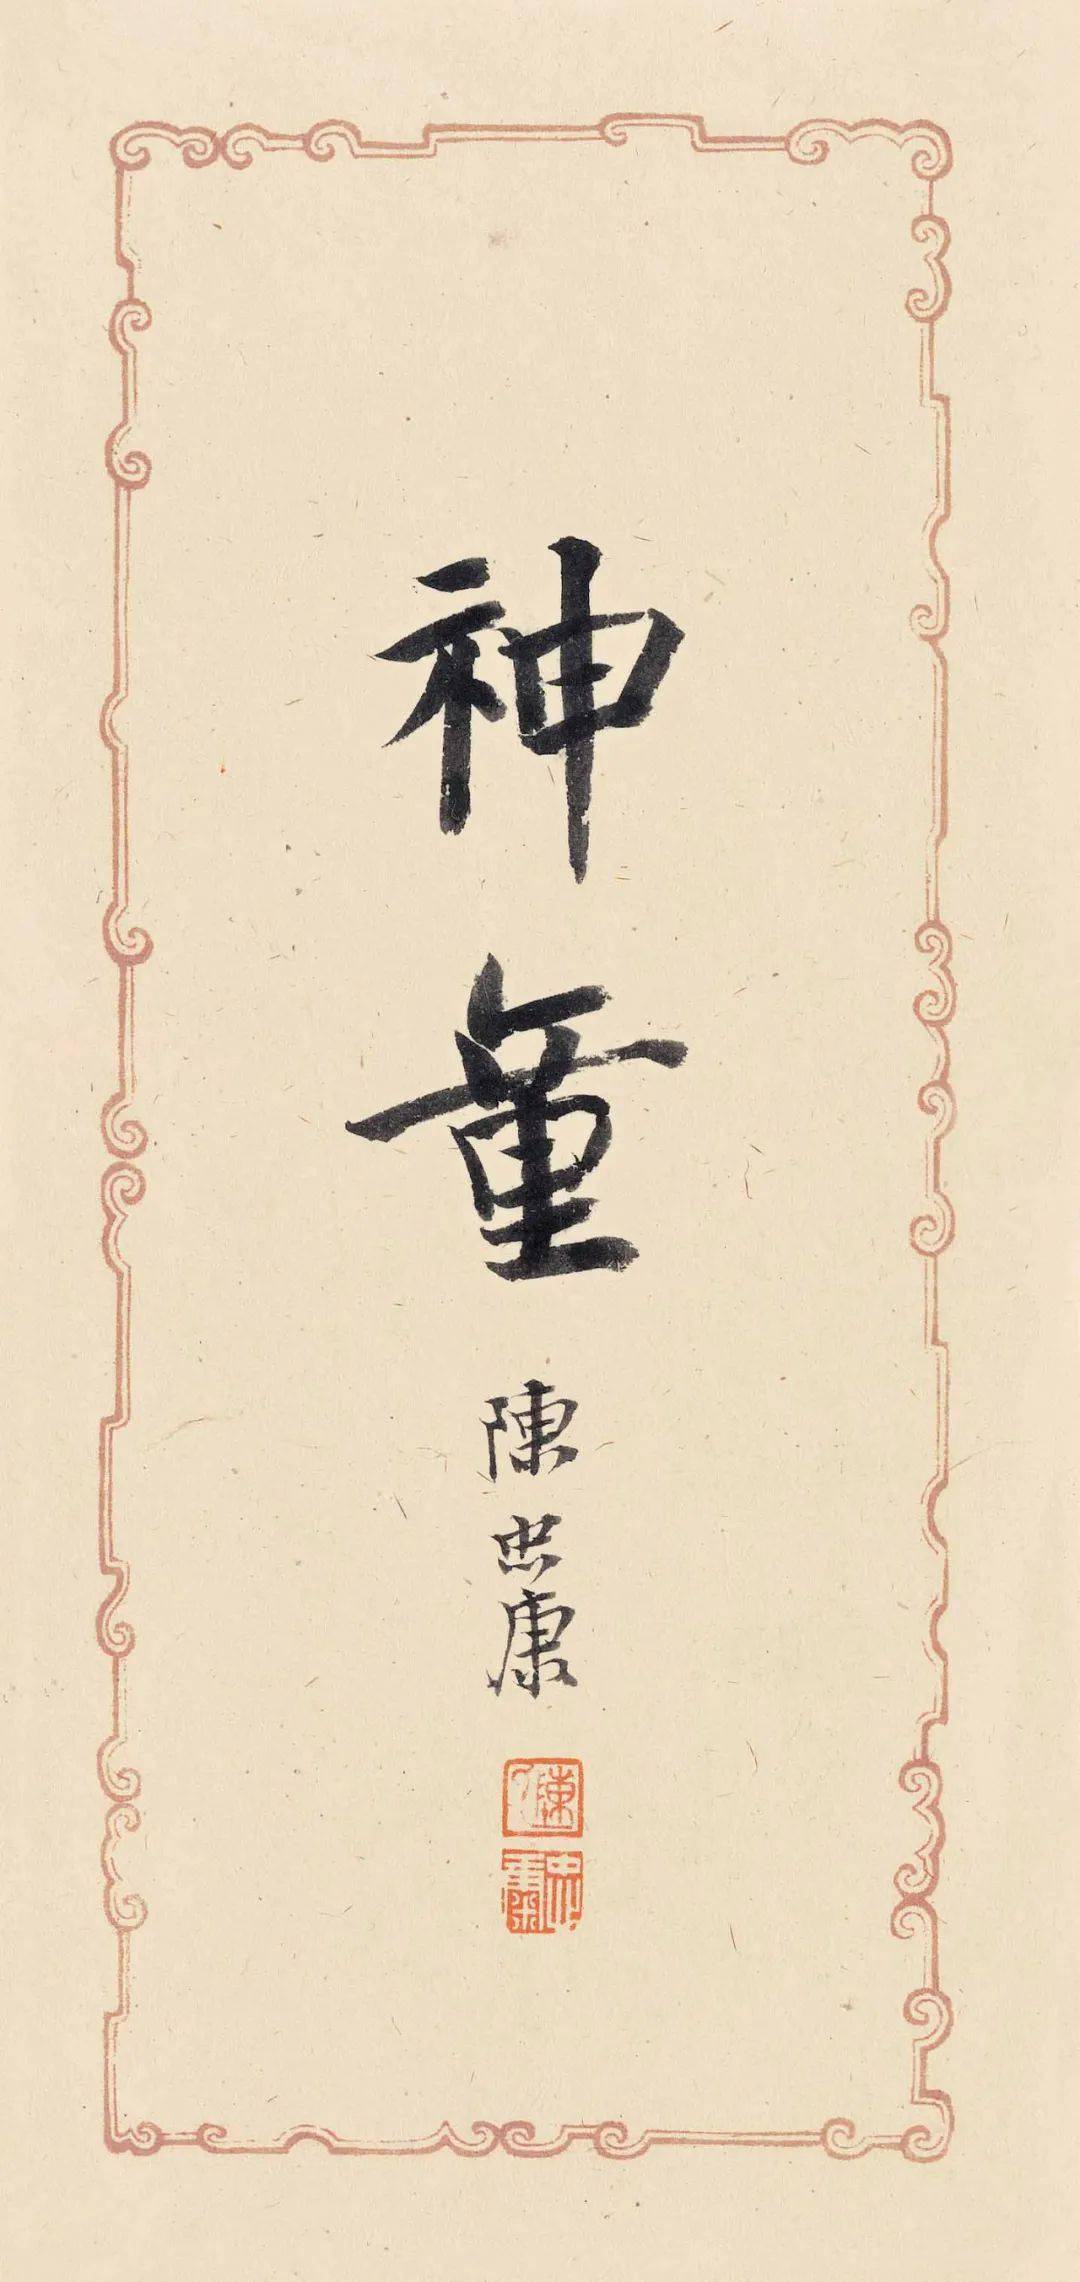 神童
陳忠康
忠康